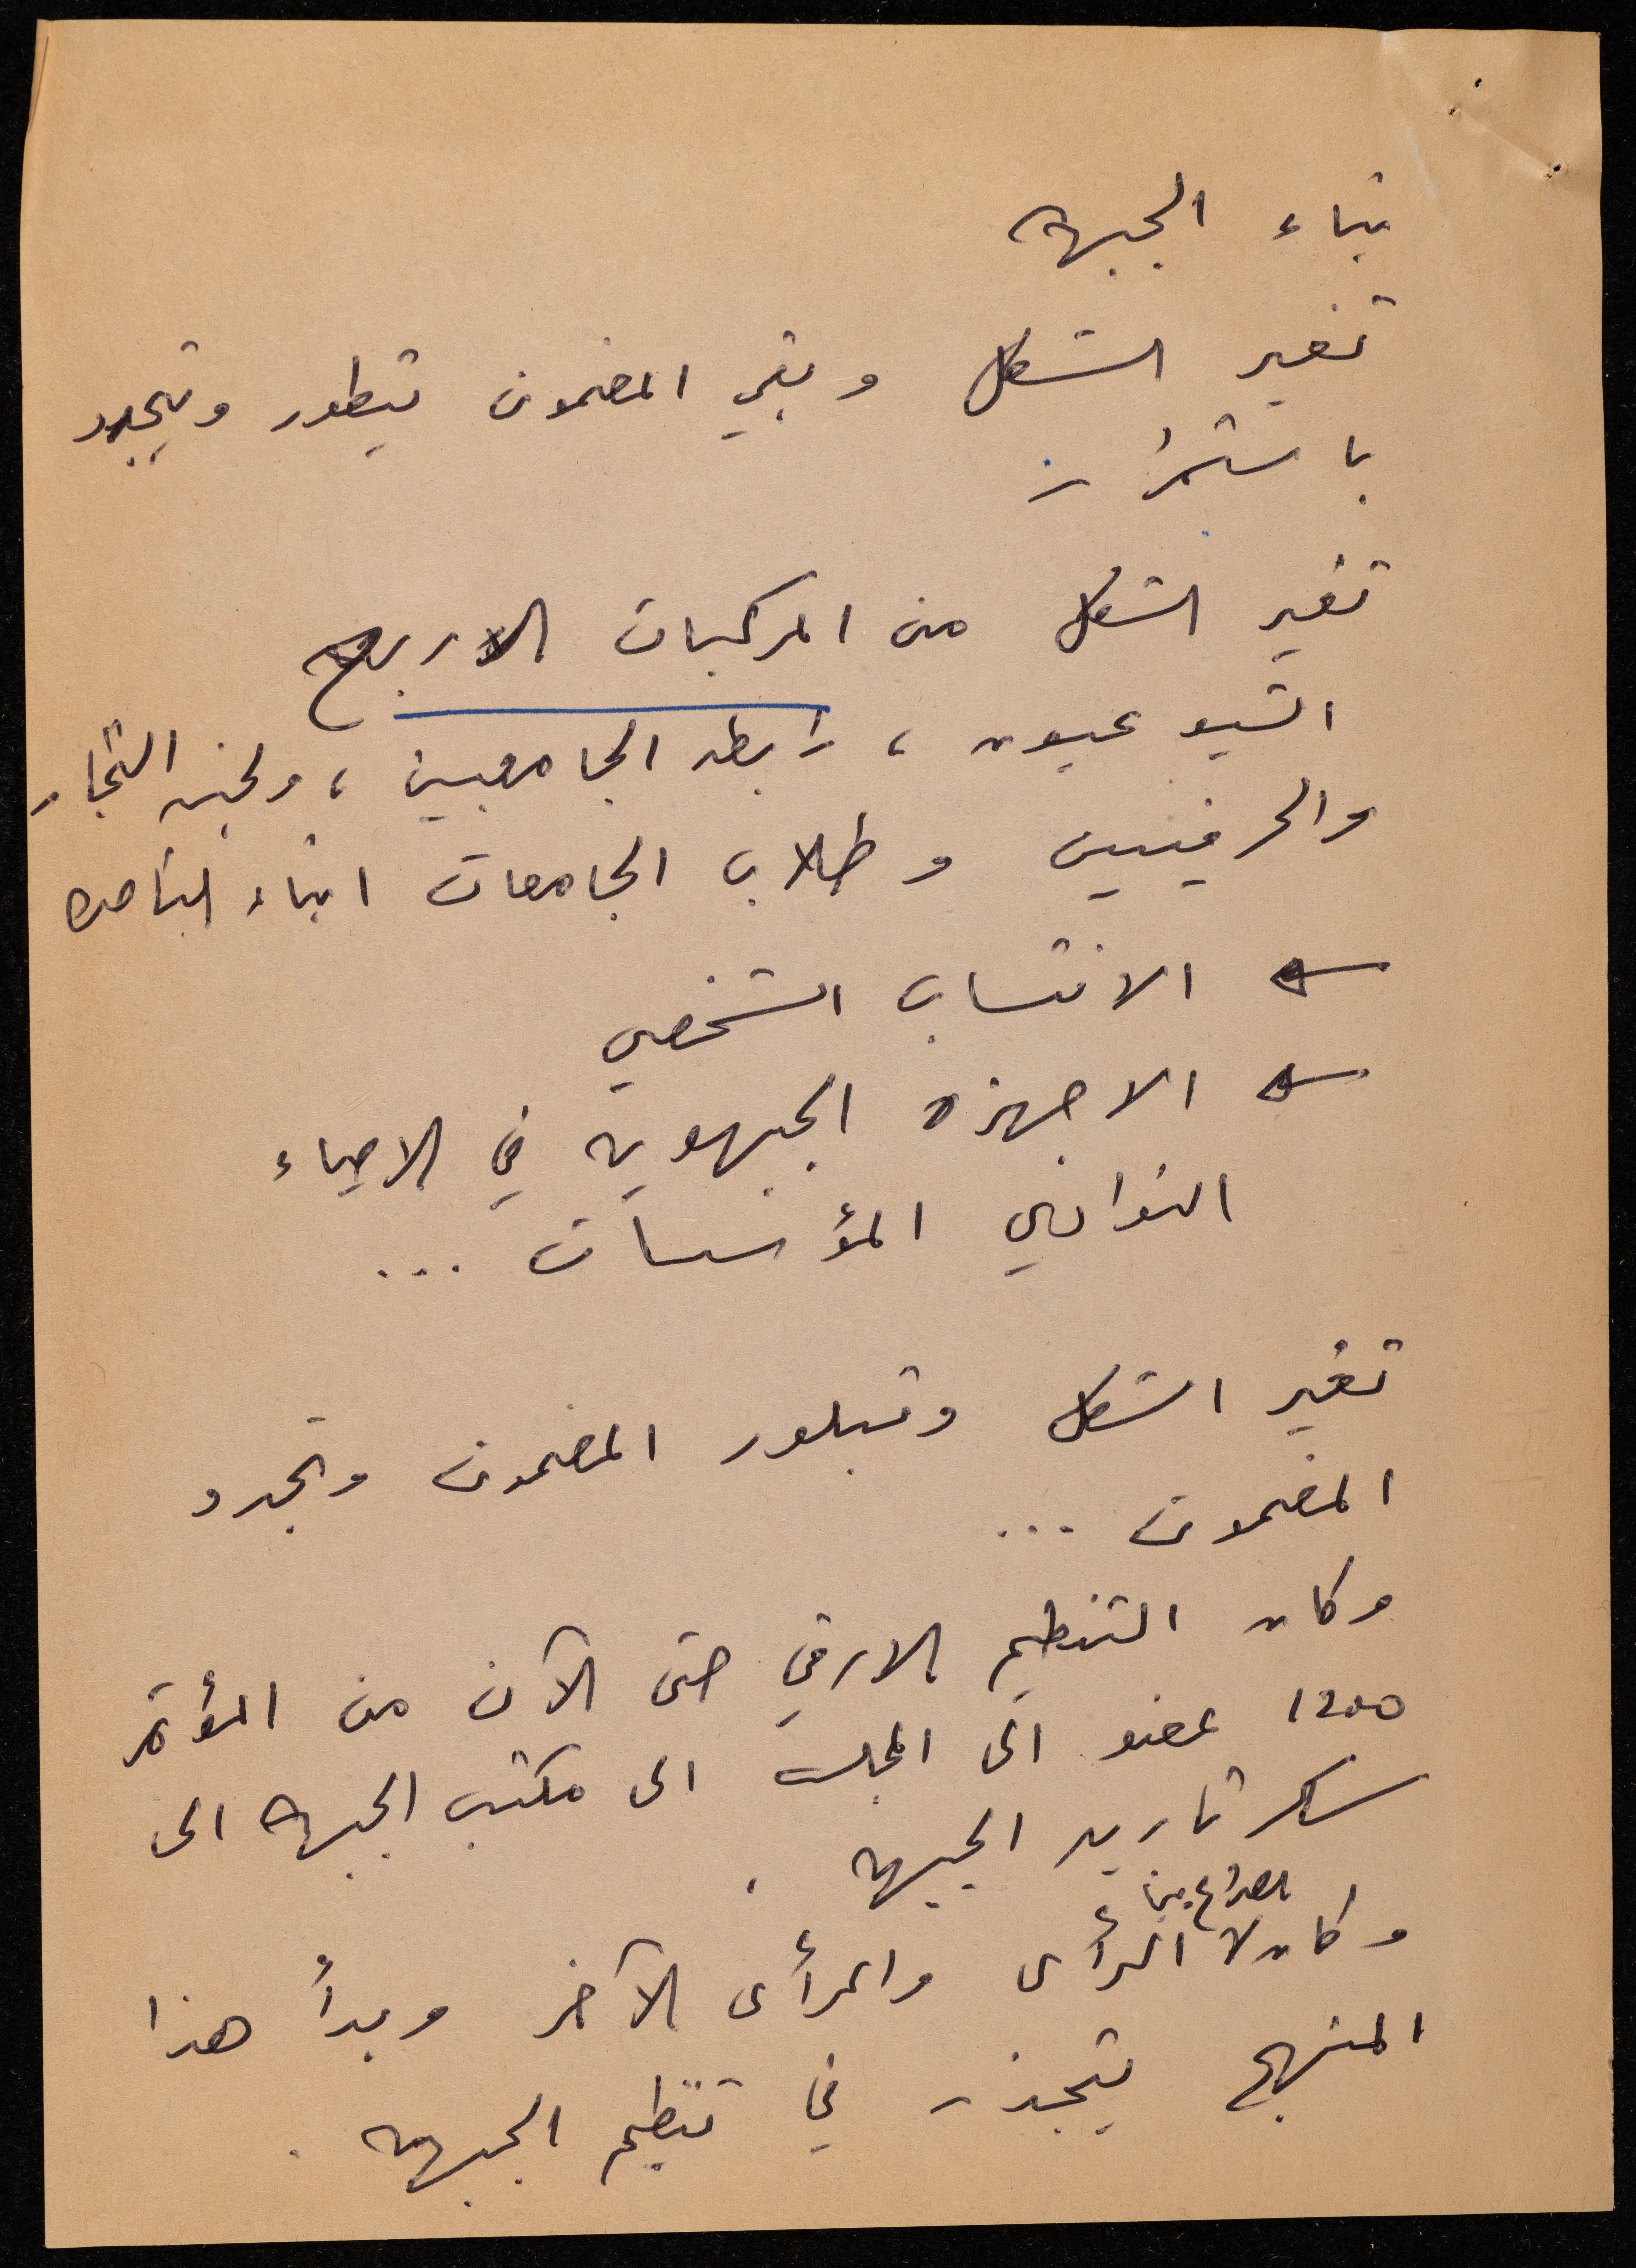 بناء الجبهه
تغير الشكل وبقي المضمون يتطور ويتجدد
باستمرار
تغير الشكل من المركبات الاربع
الشيوعيون ، رابطه الجامعيين ، ولجنه التجار
والحرفيين وطلاب الجامعات ابناء الناصره
← الانتساب الشخصي
← الاجهزه الجبهويه في الاحياء
النوادي المؤسسات ...
تغير الشكل وتبلور المضمون وتجدد
المضمون ...
وكان التنظيم الارقى حتى الآن من المؤتمر
1200 عضو الى المجلس الى مكتب الجبهه الى
سكرتاريه الجبهه .
الصراع بين
وكان الرأى والرأى الآخر وبدأ هذا
المنهج يتجذر في تنظيم الجبهه .